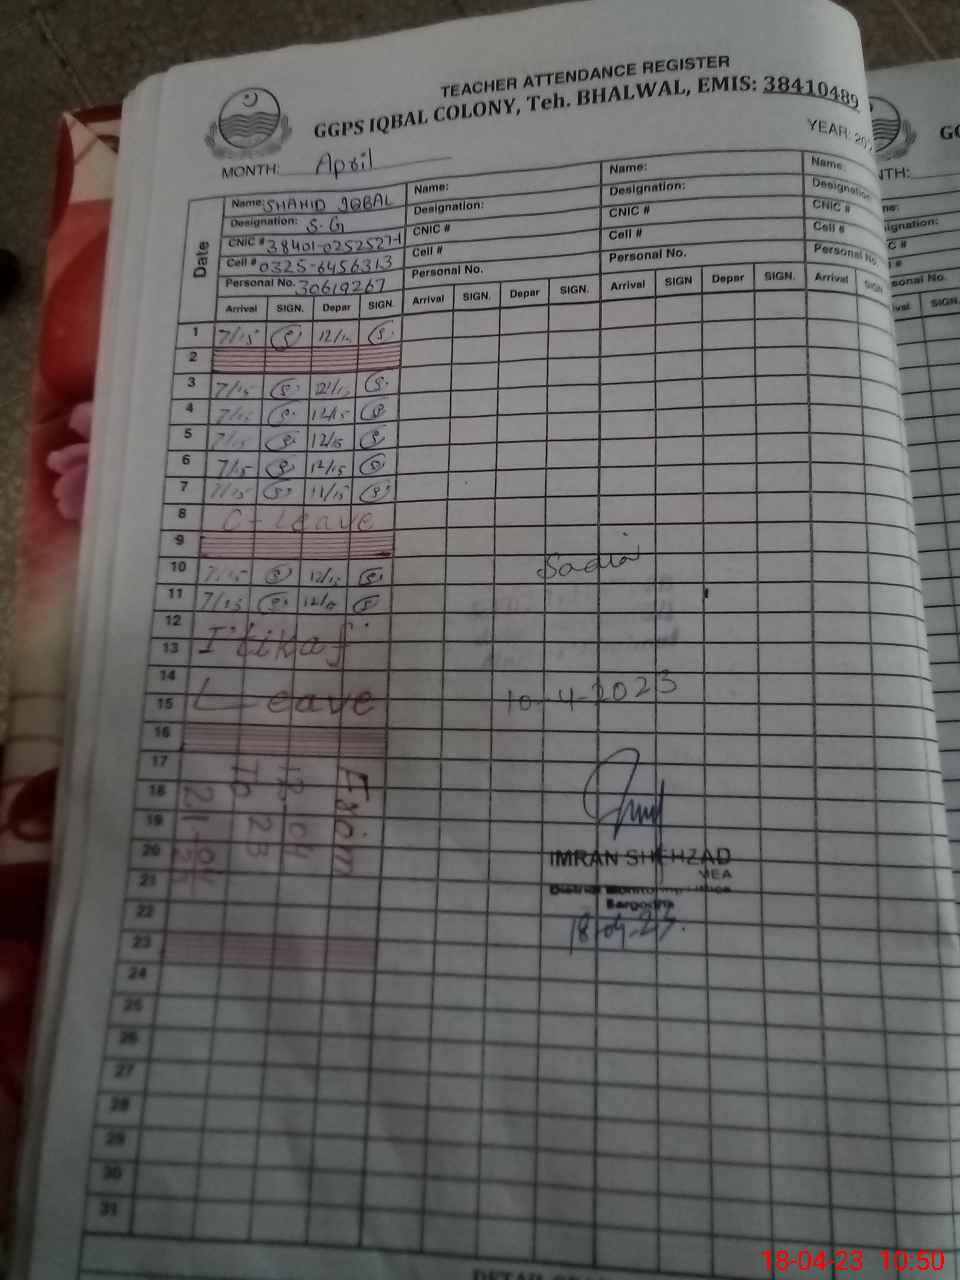 TEACHER ATTENDANCE REGISTER
GGPS IQBAL COLONY, Teh. BHALWAL, EMIS: 38410489
YEAR: 202
MONTH: April
Date
Name: SHAHID IQBAL
Designation: S.G
CNIC # 38401-0252527-1
Cell # 0325-6456313
Personal No. 30619267
Name:
Designation:
CNIC #
Cell #
Personal No.
Name:
Designation:
CNIC #
Cell #
Personal No.
Name:
Designation:
CNIC #
Cell #
Personal No.
Arrival SIGN. Depar SIGN. Arrival SIGN. Depar SIGN. Arrival SIGN Depar SIGN. Arrival SIGN
1 7/15 12/15
2
3 7/15 12/15
4 7/15 12/15
5 7/15 12/15
6 7/15 12/15
7 7/15 11/15
8 C-Leave
9
10 7/15 12/15
11 7/15 12/15
12
13 I'tikaf
14
15 Leave
16
17
18
19
20
21
22
23
24
25
26
27
28
29
30
31
From
12 04
To 23
21-04
23
Sadia
10-4-2023
IMRAN SHEHZAD
MEA
District Monitoring Office
Sargodha
18-04-23.
18-04-23 10:50